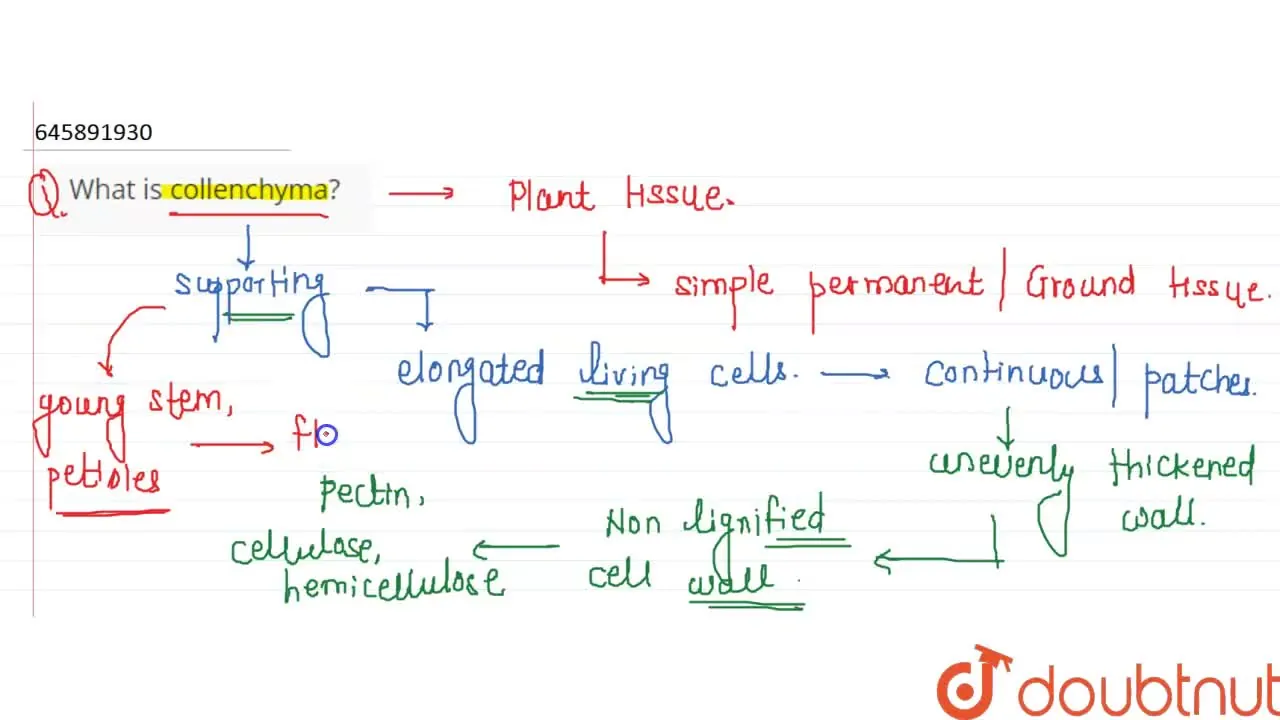 645891930
Q. What is collenchyma? → Plant tissue.
supporting
simple permanent | Ground tissue.
elongated living cells. → continuous | patches.
young stem,
petioles → fl
unevenly thickened
wall.
Non lignified
cell wall.
pectin,
cellulose,
hemicellulose
doubtnut